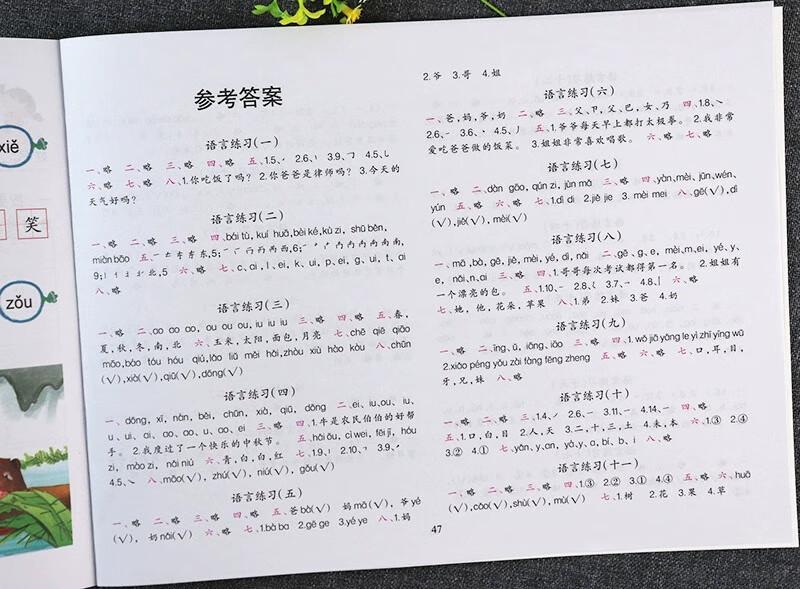 xiě
笑
zǒu
参考答案
语言练习(一)
一、略 二、略 三、略 四、略 五、1.5、㇒ 2.6、㇚ 3.9、㇇ 4.5、㇄
六、略 七、略 八、1.你吃饭了吗？2.你爸爸是律师吗？3.今天的
天气好吗？
语言练习(二)
一、略 二、略 三、略 四、bái tù, kuí huā, bèi ké, kù zi, shū bāo,
miàn bāo 五、东,5;南南,
北,5 六、略 七、c, ai, l, ei, k, ui, p, ei, g, ui, t, ai
八、略
语言练习(三)
一、略 二、ao ao ao, ou ou ou, iu iu iu 三、略 四、略 五、春,
夏,秋,冬,南,北 六、玉米,太阳,面包,月亮 七、chē qiē qiāo
māo, báo tóu hóu qiú, lǎo liǔ měi hǎi, zhòu xiù hào kòu 八、chūn
(√), xià(√), qiū(√), dōng(√)
语言练习(四)
一、dōng, xī, nán, běi, chūn, xià, qiū, dōng 二、ei, iu, ou, iu,
u, ui, ai, ao, ao, u, ao, ei 三、略 四、1.牛是农民伯伯的好帮
手。2.我度过了一个快乐的中秋节。 五、hǎi ōu, cì wei, fēi jī, hóu
zi, mào zi, nǎi niú 六、青,白,白,红 七、1.9、㇚ 2.10、㇇ 3.9、㇒
4.5、㇏ 八、māo(√), zhū(√), niú(√), gǒu(√)
语言练习(五)
一、略 二、略 三、略 四、略 五、爸bà(√) 妈mā(√), 爷yé
(√), 奶nǎi(√) 六、略 七、1.bà ba 2.gē ge 3.yé ye 八、1.妈
2.爷 3.哥 4.姐
语言练习(六)
一、爸,妈,爷,奶 二、略 三、父、卩,父、巴,女、乃 四、1.8、㇏
2.6、㇐ 3.6、㇔ 4.5、㇓ 五、1.爷爷每天早上都打太极拳。2.我非常
爱吃爸爸做的饭菜。3.姐姐非常喜欢唱歌。 六、略 七、略
语言练习(七)
一、略 二、dàn gāo, qún zi, jùn mǎ 三、略 四、yān, měi, jūn, wén,
yún 五、略 六、略 七、1.dì di 2.jiě jie 3.mèi mei 八、gē(√), dì
(√), jiě(√), mèi(√)
语言练习(八)
一、mā, bà, gē, jiě, mèi, yé, dì, nǎi 二、gē, g, e, mèi, m, ei, yé, y,
e, nǎi, n, ai 三、略 四、1.哥哥每次考试都得第一名。2.姐姐有
一个漂亮的包。 五、1.10、㇐ 2.8、㇏ 3.7、㇐ 4.8、㇚ 六、略
七、她,他,花朵,苹果 八、1.弟 2.妹 3.爸 4.奶
语言练习(九)
一、略 二、īng, ū, iāng, iǎo 三、略 四、1.wǒ jiā yǎng le yì zhī yīng wǔ
2.xiǎo péng yǒu zài fàng fēng zheng 五、略 六、略 七、口,耳,目,
牙,兄,妹 八、略
语言练习(十)
一、略 二、略 三、1.4、㇒ 2.6、㇐ 3.11、㇐ 4.14、㇐ 四、略
五、1.口,白,目 2.人,天 3.二,十,三,土 4.未,本 六、1.③ 2.④
3.② 4.① 七、yān, y, an, yá, y, a, bí, b, i 八、略
语言练习(十一)
一、略 二、略 三、略 四、1.③ 2.② 3.① 4.④ 五、略 六、huā
(√), cǎo(√), shù(√), mù(√) 七、1.树 2.花 3.果 4.草
47